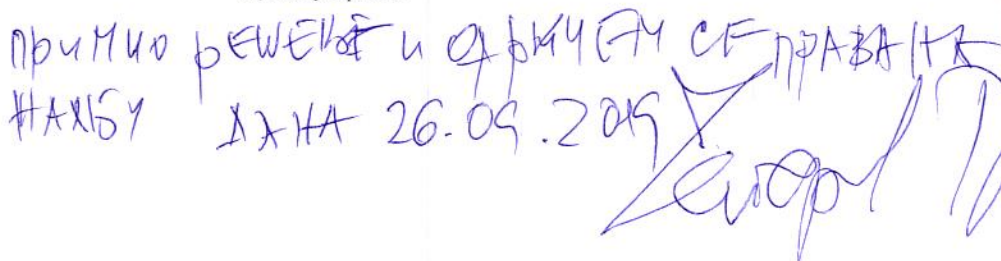 примио РЕШЕЊЕ и одричем СЕ ПРАВА НА
ЖАЛБУ ДАНА 26.09.2019